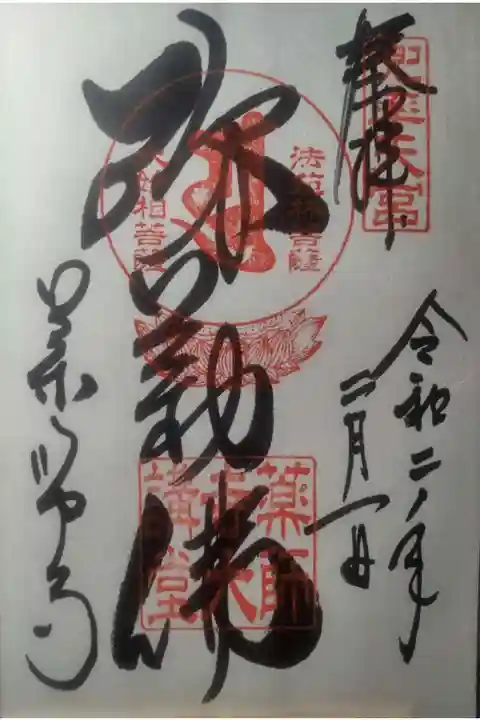 兜率天宮
奉拝
令和二年
二月一日
法苑林菩薩
弥勒佛
大妙相菩薩
薬師
寺大
講堂
薬師寺